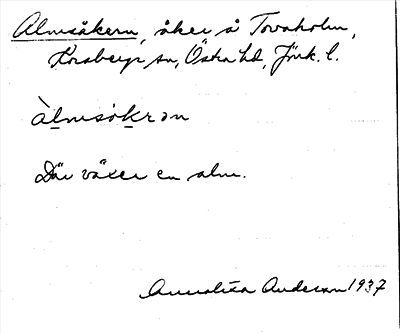 Almsåkern, åker å Tovaholm,
Korsberga sn, Östra hd, Jönk. l.
àlmsókrən
Där växer en alm.
Annalisa Anderson 1937